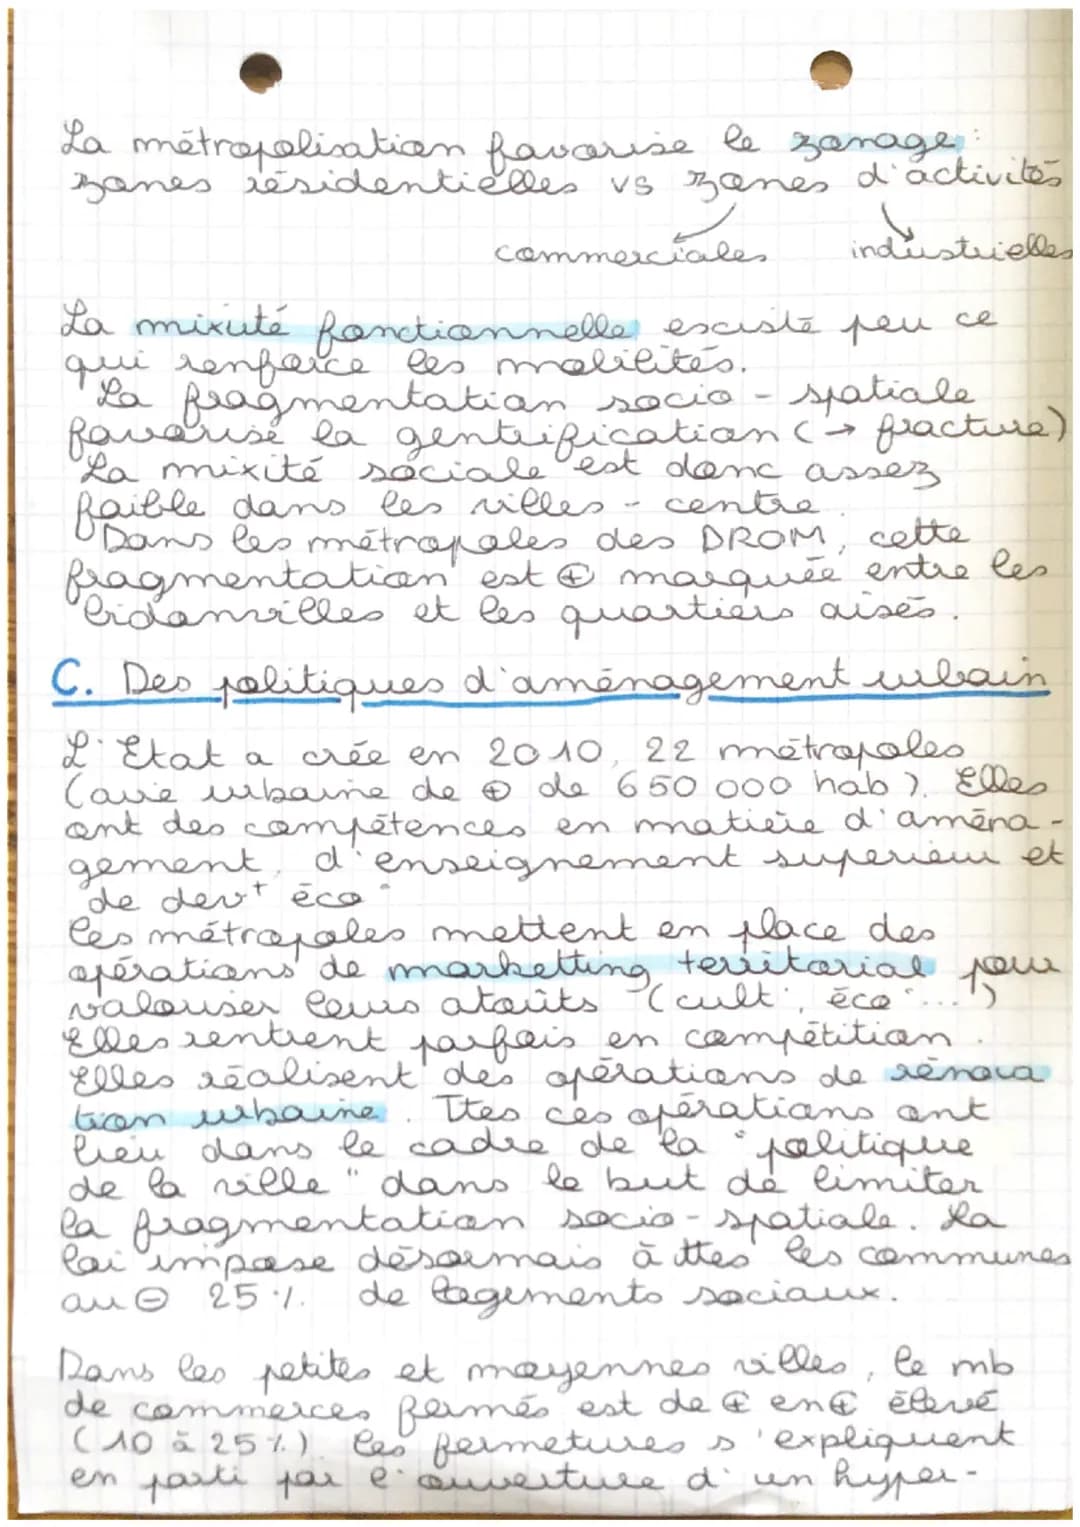 La métropolisation favorise le zonage :
zones résidentielles vs zones d'activités
commerciales industrielles
La mixité fonctionnelle existe peu ce
qui renforce les mobilités.
La fragmentation socio-spatiale
favorise la gentrification (→ fracture)
La mixité sociale est donc assez
faible dans les villes-centre.
Dans les métropoles des DROM, cette
fragmentation est ⊕ marquée entre les
bidonvilles et les quartiers aisés.
C. Des politiques d'aménagement urbain
L'Etat a crée en 2010, 22 métropoles
(avie urbaine de ⊕ de 650 000 hab). Elles
ont des compétences en matière d'aména-
gement, d'enseignement superieur et
de devt éco°
Les métropoles mettent en place des
opérations de marketting territorial pour
valoriser leurs atouts (cult°, éco°...)
Elles rentrent parfois en compétition.
Elles réalisent des opérations de rénova
tion urbaine. Ttes ces opérations ont
lieu dans le cadre de la "politique
de la ville" dans le but de limiter
la fragmentation socio-spatiale. La
loi impose désormais à ttes les communes
au ⊖ 25 % de logements sociaux.
Dans les petites et moyennes villes, le nb
de commerces fermés est de ⊕ en ⊕ élevé
(10 à 25%). Les fermetures s'expliquent
en parti par l'ouverture d'un hyper-